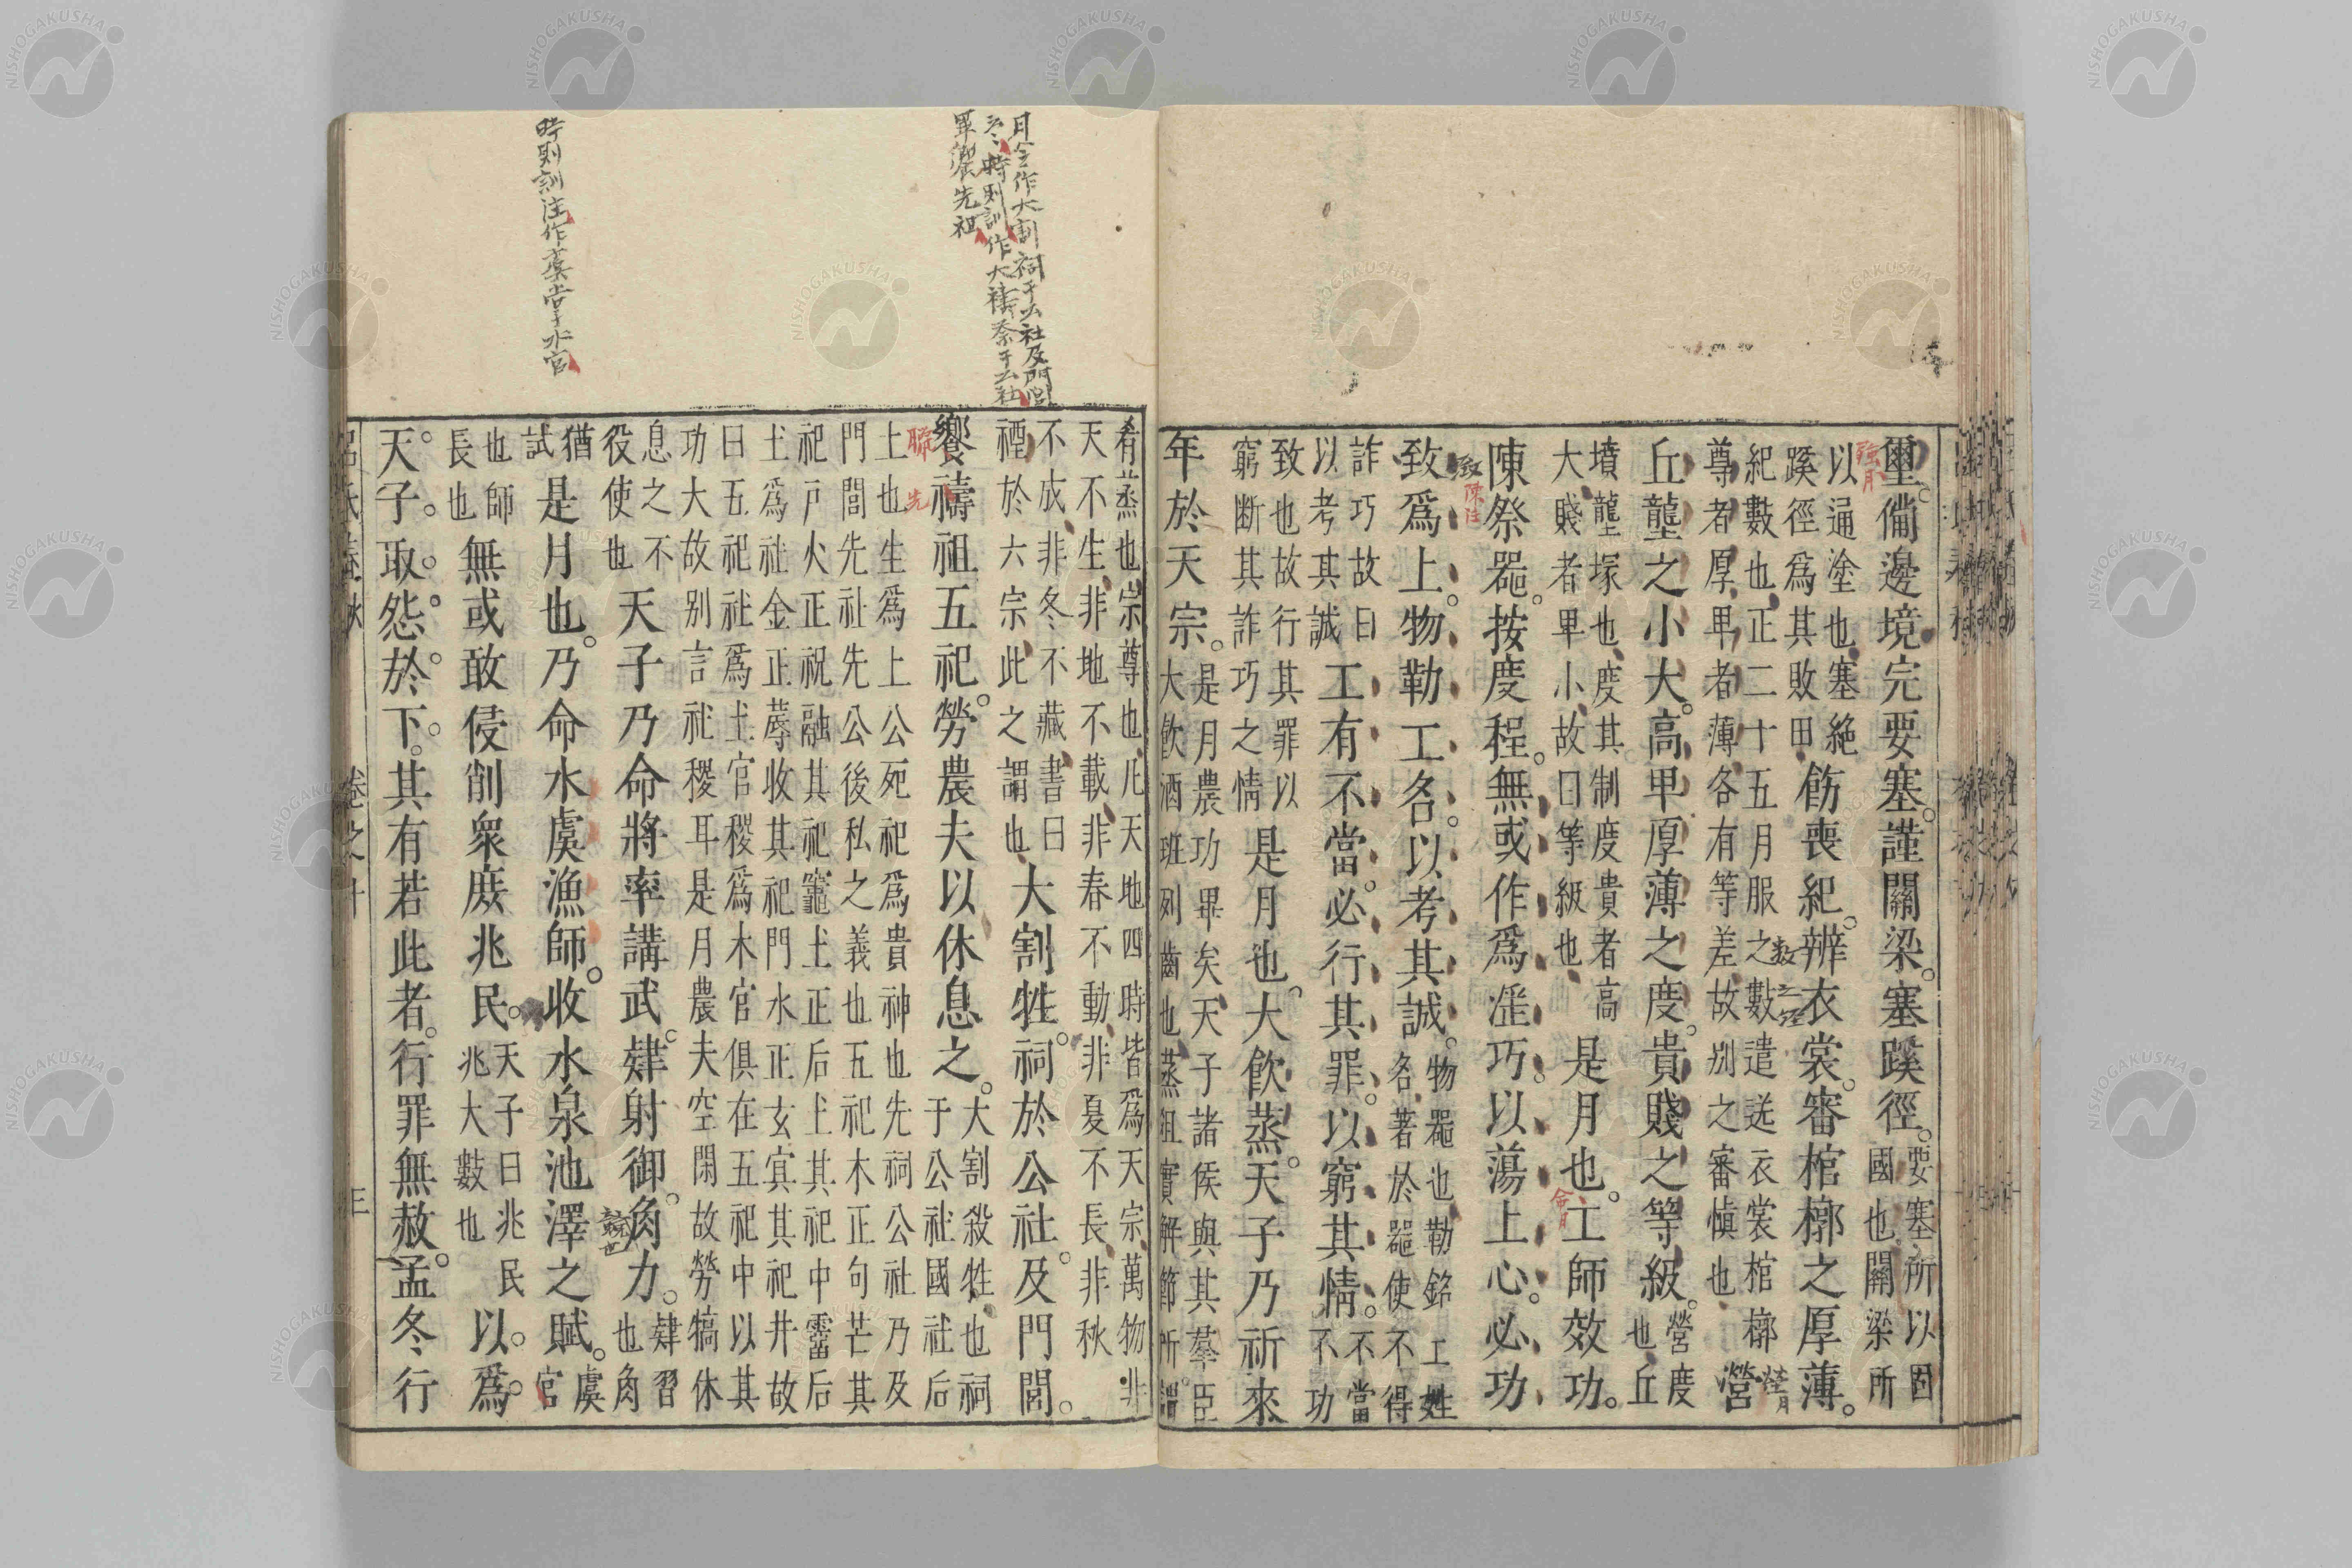 璽備邊境完要塞謹關梁塞蹊徑要塞所以固國也關梁所
以通塗也塞絶蹊徑爲其敗田飭喪紀辨衣裳審棺槨之厚薄
紀數也正二十五月服之數遣送衣裳棺槨尊者厚卑者薄各有等差故别之審慎也營
丘壟之小大高卑厚薄之度貴賤之等級營度也丘
墳壟塚也度其制度貴者高大賤者卑小故曰等級也是月也工師效功
陳祭器按度程無或作爲淫巧以蕩上心必功
致爲上物勒工名以考其誠物器也勒銘工姓名著於器使不得
詐巧故曰以考其誠工有不當必行其罪以窮其情不當不功
致也故行其罪以窮斷其詐巧之情是月也大飲蒸天子乃祈來
年於天宗是月農功畢矣天子諸侯與其羣臣大飲酒班列齒也蒸俎實解節所謂
肴蒸也宗尊也凡天地四時皆爲天宗萬物非天不生非地不載非春不動非夏不長非秋
不成非冬不藏書曰禋於六宗此之謂也大割牲祠於公社及門閭
饗禱祖五祀勞農夫以休息之大割殺牲也祠于公社國社后
土也生爲上公死祀爲貴神也先祠公社乃及門閭先社先公後私之義也五祀木正句芒其
祀戸火正祝融其祀竈土正后土其祀中霤后土爲社金正蓐收其祀門水正玄冥其祀井故
曰五祀社爲土官稷爲木官俱在五祀中以其功大故别言社稷耳是月農夫空閑故勞犒休
息之不役使也天子乃命將率講武肄射御角力肄習也角
猶試是月也乃命水虞漁師收水泉池澤之賦虞官
也師長也無或敢侵削衆庶兆民天子曰兆民兆大數也以爲
天子取怨於下其有若此者行罪無赦孟冬行
呂氏春秋 卷之十 三
月令作大割祠于公社及門閭
時則訓作大禱祭于公社
畢饗先祖
時則訓注作虞掌水官